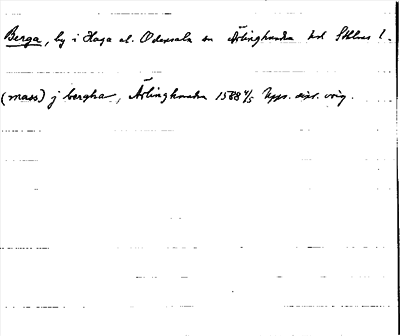 Berga, by i Haga el. Odensala sn Ärlinghundra hd Sthlms l.
(mass) j bergha, Ärlinghundra 1588 4/5 Upps. dipl. orig.